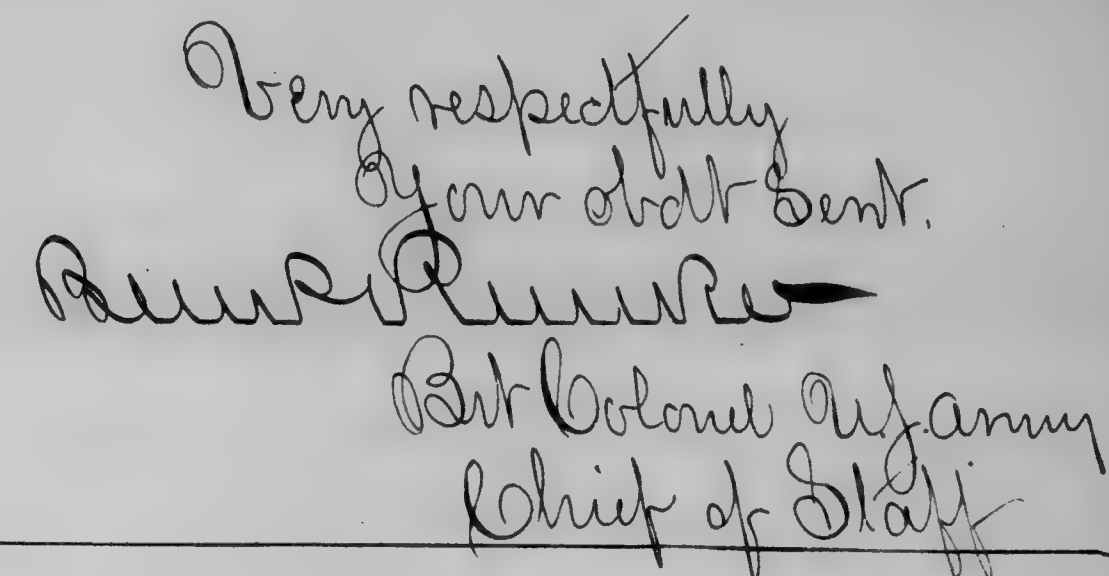 Very respectfully
Your obdt Servt.
Ben P Runkle
Bvt Colonel U.S. Army
Chief of Staff